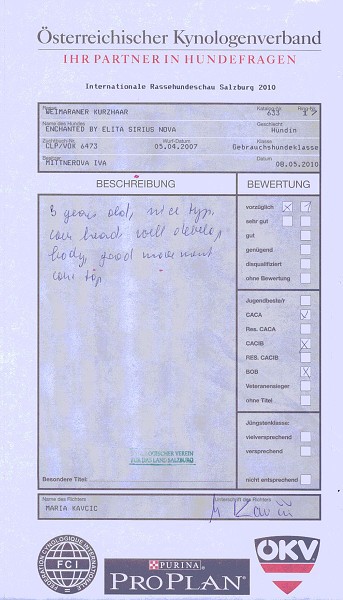 Österreichischer Kynologenverband
IHR PARTNER IN HUNDEFRAGEN
Internationale Rassehundeschau Salzburg 2010
Rasse Katalog-Nr. Ring-Nr.
WEIMARANER KURZHAAR 633 17
Name des Hundes Geschlecht
ENCHANTED BY ELITA SIRIUS NOVA Hündin
Zuchtbuch-Nr. Wurf-Datum Klasse
CLP/VOR 6473 05.04.2007 Gebrauchshundeklasse
Besitzer Datum
MITTNEROVA IVA 08.05.2010
BESCHREIBUNG
3 years old, nice type,
head well
body, good movement
top
ÖSTERREICHISCHER VEREIN
FÜR DAS LAND SALZBURG
Besondere Titel:
BEWERTUNG
vorzüglich
sehr gut
gut
genügend
disqualifiziert
ohne Bewertung
Jugendbeste/r
CACA
Res. CACA
CACIB
RES. CACIB
BOB
Veteranensieger
ohne Titel
Jüngstenklasse:
vielversprechend
versprechend
nicht entsprechend
Name des Richters Unterschrift des Richters
MARIA KAVCIC
FEDERATION CYNOLOGIQUE INTERNATIONALE
FCI
PURINA
PRO PLAN
ÖKV